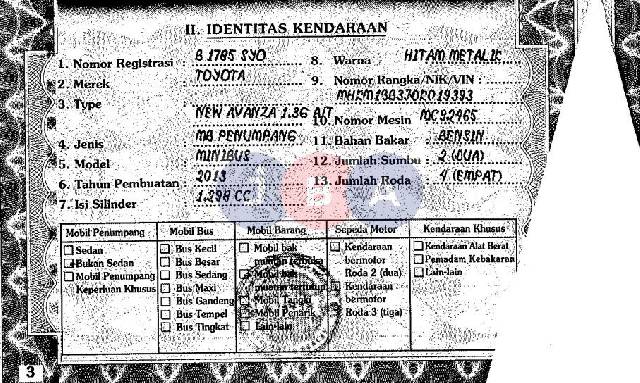 II. IDENTITAS KENDARAAN
1. Nomor Registrasi : B 1785 SYO
2. Merek : TOYOTA
3. Type : NEW AVANZA 1.3G A/T
4. Jenis : MB PENUMPANG
5. Model : MINIBUS
6. Tahun Pembuatan : 2013
7. Isi Silinder : 1.298 CC
8. Warna : HITAM METALIK
9. Nomor Rangka/NIK/VIN :
10. Nomor Mesin :
11. Bahan Bakar : BENSIN
12. Jumlah Sumbu : 2 (DUA)
13. Jumlah Roda : 4 (EMPAT)
IBA
Mobil Penumpang
Sedan
Bukan Sedan
Mobil Penumpang
Keperluan Khusus
Mobil Bus
Bus Kecil
Bus Besar
Bus Sedang
Bus Maxi
Bus Gandeng
Bus Tempel
Bus Tingkat
Mobil Barang
Mobil bak
muatan terbuka
Mobil bak
muatan tertutup
Mobil Tangki
Mobil Penarik
Lain-lain
Sepeda Motor
Kendaraan
bermotor
Roda 2 (dua)
Kendaraan
bermotor
Roda 3 (tiga)
Kendaraan Khusus
Kendaraan Alat Berat
Pemadam Kebakaran
Lain-lain
3